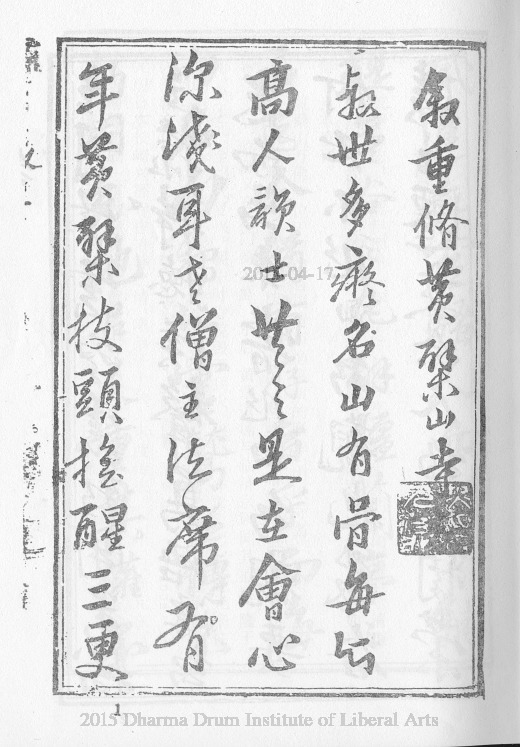 叙重脩黄檗山
叔世多癡名山有骨每
高人韻士共之是在會心
深淺耳老僧主法席有
年黄檗枝頭搖醒三更
1
2015 Dharma Drum Institute of Liberal Arts